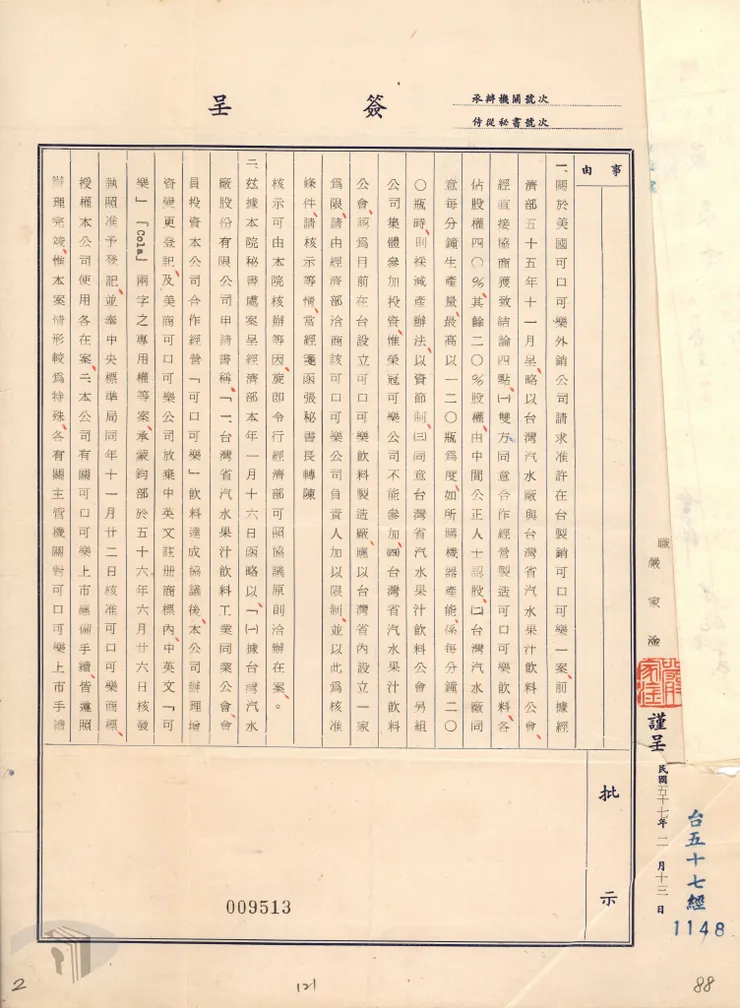 簽　呈
承辦機關號次
侍從秘書號次
事由
一、關於美國可口可樂外銷公司請求准許在台製銷可口可樂一案、前據經
濟部五十五年十一月呈、略以台灣汽水廠與台灣省汽水果汁飲料公會、
經直接協商獲致結論四點、㈠雙方同意合作經營製造可口可樂飲料、各
佔股權四〇％、其餘二〇％股權、由中間公正人士認股、㈡台灣汽水廠同
意每分鐘生產量、最高以一二〇瓶為度、如所購機器產能、係每分鐘二〇
〇瓶時、則採減產辦法、以資節制、㈢同意台灣省汽水果汁飲料公會另組
公司集體參加投資、惟榮冠可樂公司不能參加、㈣台灣省汽水果汁飲料
公會、認為目前在台設立可口可樂飲料製造廠、應以台灣省內設立一家
為限、請由經濟部洽商該可口可樂公司負責人加以限制、並以此為核准
條件、請核示等情、當經箋函張秘書長轉陳
核示可由本院核辦等因、旋即令行經濟部可照協議原則洽辦在案、。
二、茲據本院秘書處案呈經濟部本年一月十六日函略以、「㈠據台灣汽水
廠股份有限公司申請書稱、「一、台灣省汽水果汁飲料工業同業公會會
員投資本公司合作經營「可口可樂」飲料達成協議後、本公司辦理增
資變更登記、及美商可口可樂公司放棄中英文註册商標內、中英文「可
樂」「Cola」兩字之專用權等案、承蒙鈞部於五十六年六月廿六日核發
執照准予登記、並奉中央標準局同年十一月廿二日核准可口可樂商標、
授權本公司使用各在案、二、本公司有關可口可樂上市應備手續、皆遵照
辦理完竣、惟本案情形較為特殊、各有關主管機關對可口可樂上市手續
批示
009513
職　嚴家淦
嚴家淦
謹呈
民國五十七年二月十三日
台五十七經
1148
2
121
88